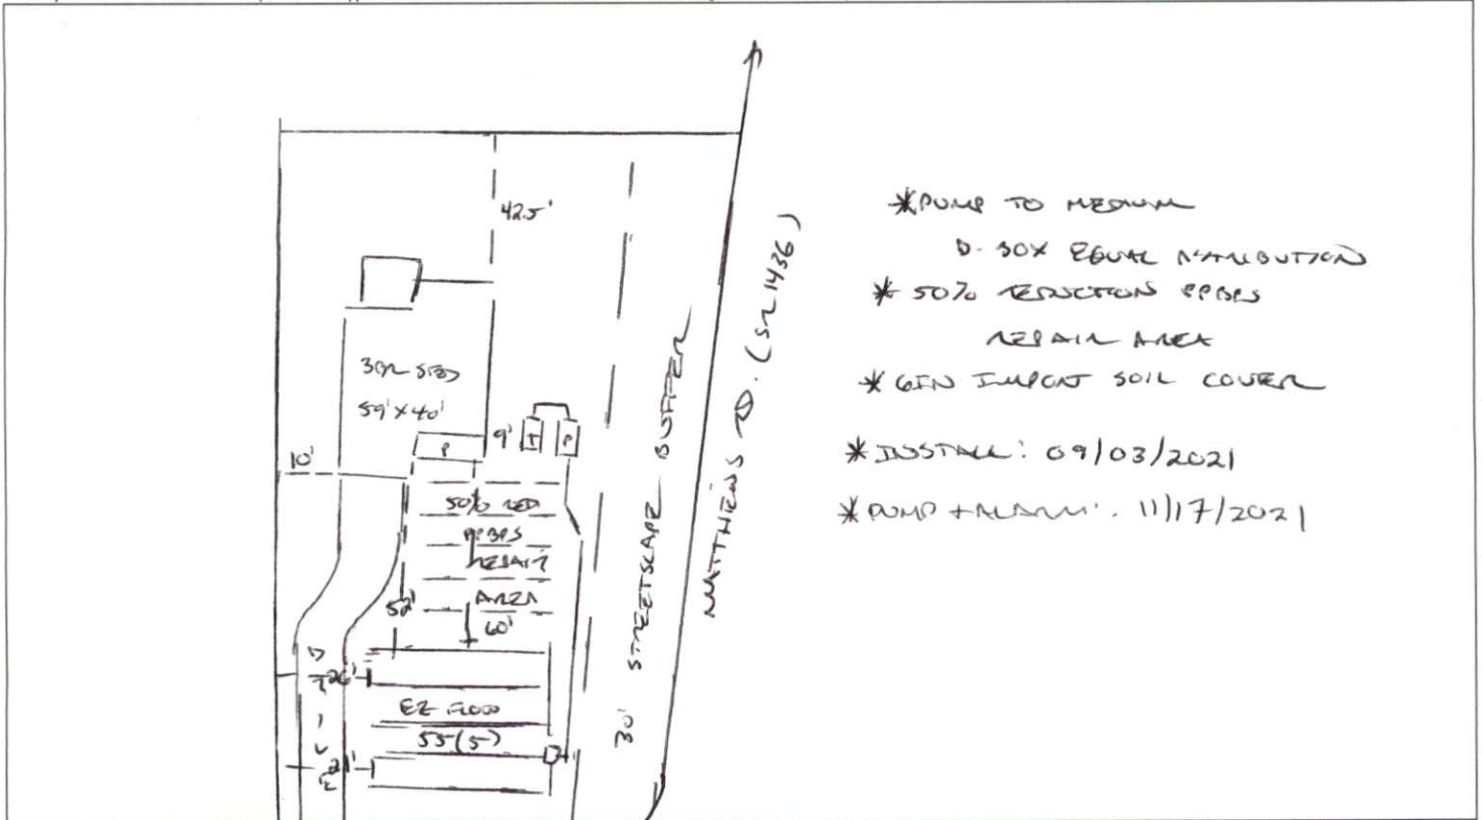 42.5'
3BR SFD
59' X 40'
P
9'
T
P
10'
50% RED
PPBPS
REPAIR
AREA
60'
52'
DRIVE
26'
EZ FLOW
55(5)
21'
30' STREETSCAPE BUFFER
MATTHEWS RD. (SR 1436)
*PUMP TO MEDIUM
D-BOX EQUAL DISTRIBUTION
* 50% REDUCTION PPBPS
REPAIR AREA
* 6IN IMPORT SOIL COVER
* INSTALL: 09/03/2021
* PUMP + ALARM: 11/17/2021